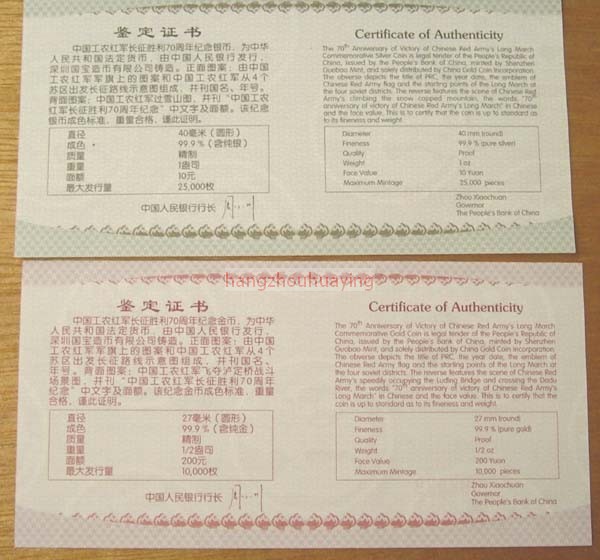 鉴定证书
中国工农红军长征胜利70周年纪念银币，为中华
人民共和国法定货币，由中国人民银行发行，
深圳国宝造币有限公司铸造。正面图案：由中国
工农红军军旗上的图案和中国工农红军从4个
苏区出发长征路线示意图组成，并刊国名、年号。
背面图案：中国工农红军过雪山图，并刊“中国工农
红军长征胜利70周年纪念”中文字及面额。该纪念
银币成色标准，重量合格，谨此证明。
直径 40毫米（圆形）
成色 99.9％（含纯银）
质量 精制
重量 1盎司
面额 10元
最大发行量 25,000枚
中国人民银行行长
Certificate of Authenticity
The 70th Anniversary of Victory of Chinese Red Army's Long March
Commemorative Silver Coin is legal tender of the People's Republic of
China, issued by the People's Bank of China, minted by Shenzhen
Guobao Mint, and solely distributed by China Gold Coin Incorporation.
The obverse depicts the title of PRC, the year date, the emblem of
Chinese Red Army flag and the starting points of the Long March at
the four soviet districts. The reverse features the scene of Chinese Red
Army's climbing the snow capped mountain, the words "70th
anniversary of victory of Chinese Red Army's Long March" in Chinese
and the face value. This is to certify that the coin is up to standard as
to its fineness and weight.
Diameter 40 mm (round)
Fineness 99.9 % (pure silver)
Quality Proof
Weight 1 oz
Face Value 10 Yuan
Maximum Mintage 25,000 pieces
Zhou Xiaochuan
Governor
The People's Bank of China
hangzhouhuaying
鉴定证书
中国工农红军长征胜利70周年纪念金币，为中华
人民共和国法定货币，由中国人民银行发行，
深圳国宝造币有限公司铸造。正面图案：由中国
工农红军军旗上的图案和中国工农红军从4个
苏区出发长征路线示意图组成，并刊国名、
年号。背面图案：中国工农红军飞夺泸定桥战斗
场景图，并刊“中国工农红军长征胜利70周年
纪念”中文字及面额。该纪念金币成色标准，重量
合格，谨此证明。
直径 27毫米（圆形）
成色 99.9％（含纯金）
质量 精制
重量 1/2盎司
面额 200元
最大发行量 10,000枚
中国人民银行行长
Certificate of Authenticity
The 70th Anniversary of Victory of Chinese Red Army's Long March
Commemorative Gold Coin is legal tender of the People's Republic of
China, issued by the People's Bank of China, minted by Shenzhen
Guobao Mint, and solely distributed by China Gold Coin Incorporation.
The obverse depicts the title of PRC, the year date, the emblem of
Chinese Red Army flag and the starting points of the Long March at
the four soviet districts. The reverse features the scene of Chinese Red
Army's speedily occupying the Luding Bridge and crossing the Dadu
River, the words "70th anniversary of victory of Chinese Red Army's
Long March" in Chinese and the face value. This is to certify that the
coin is up to standard as to its fineness and weight.
Diameter 27 mm (round)
Fineness 99.9 % (pure gold)
Quality Proof
Weight 1/2 oz
Face Value 200 Yuan
Maximum Mintage 10,000 pieces
Zhou Xiaochuan
Governor
The People's Bank of China